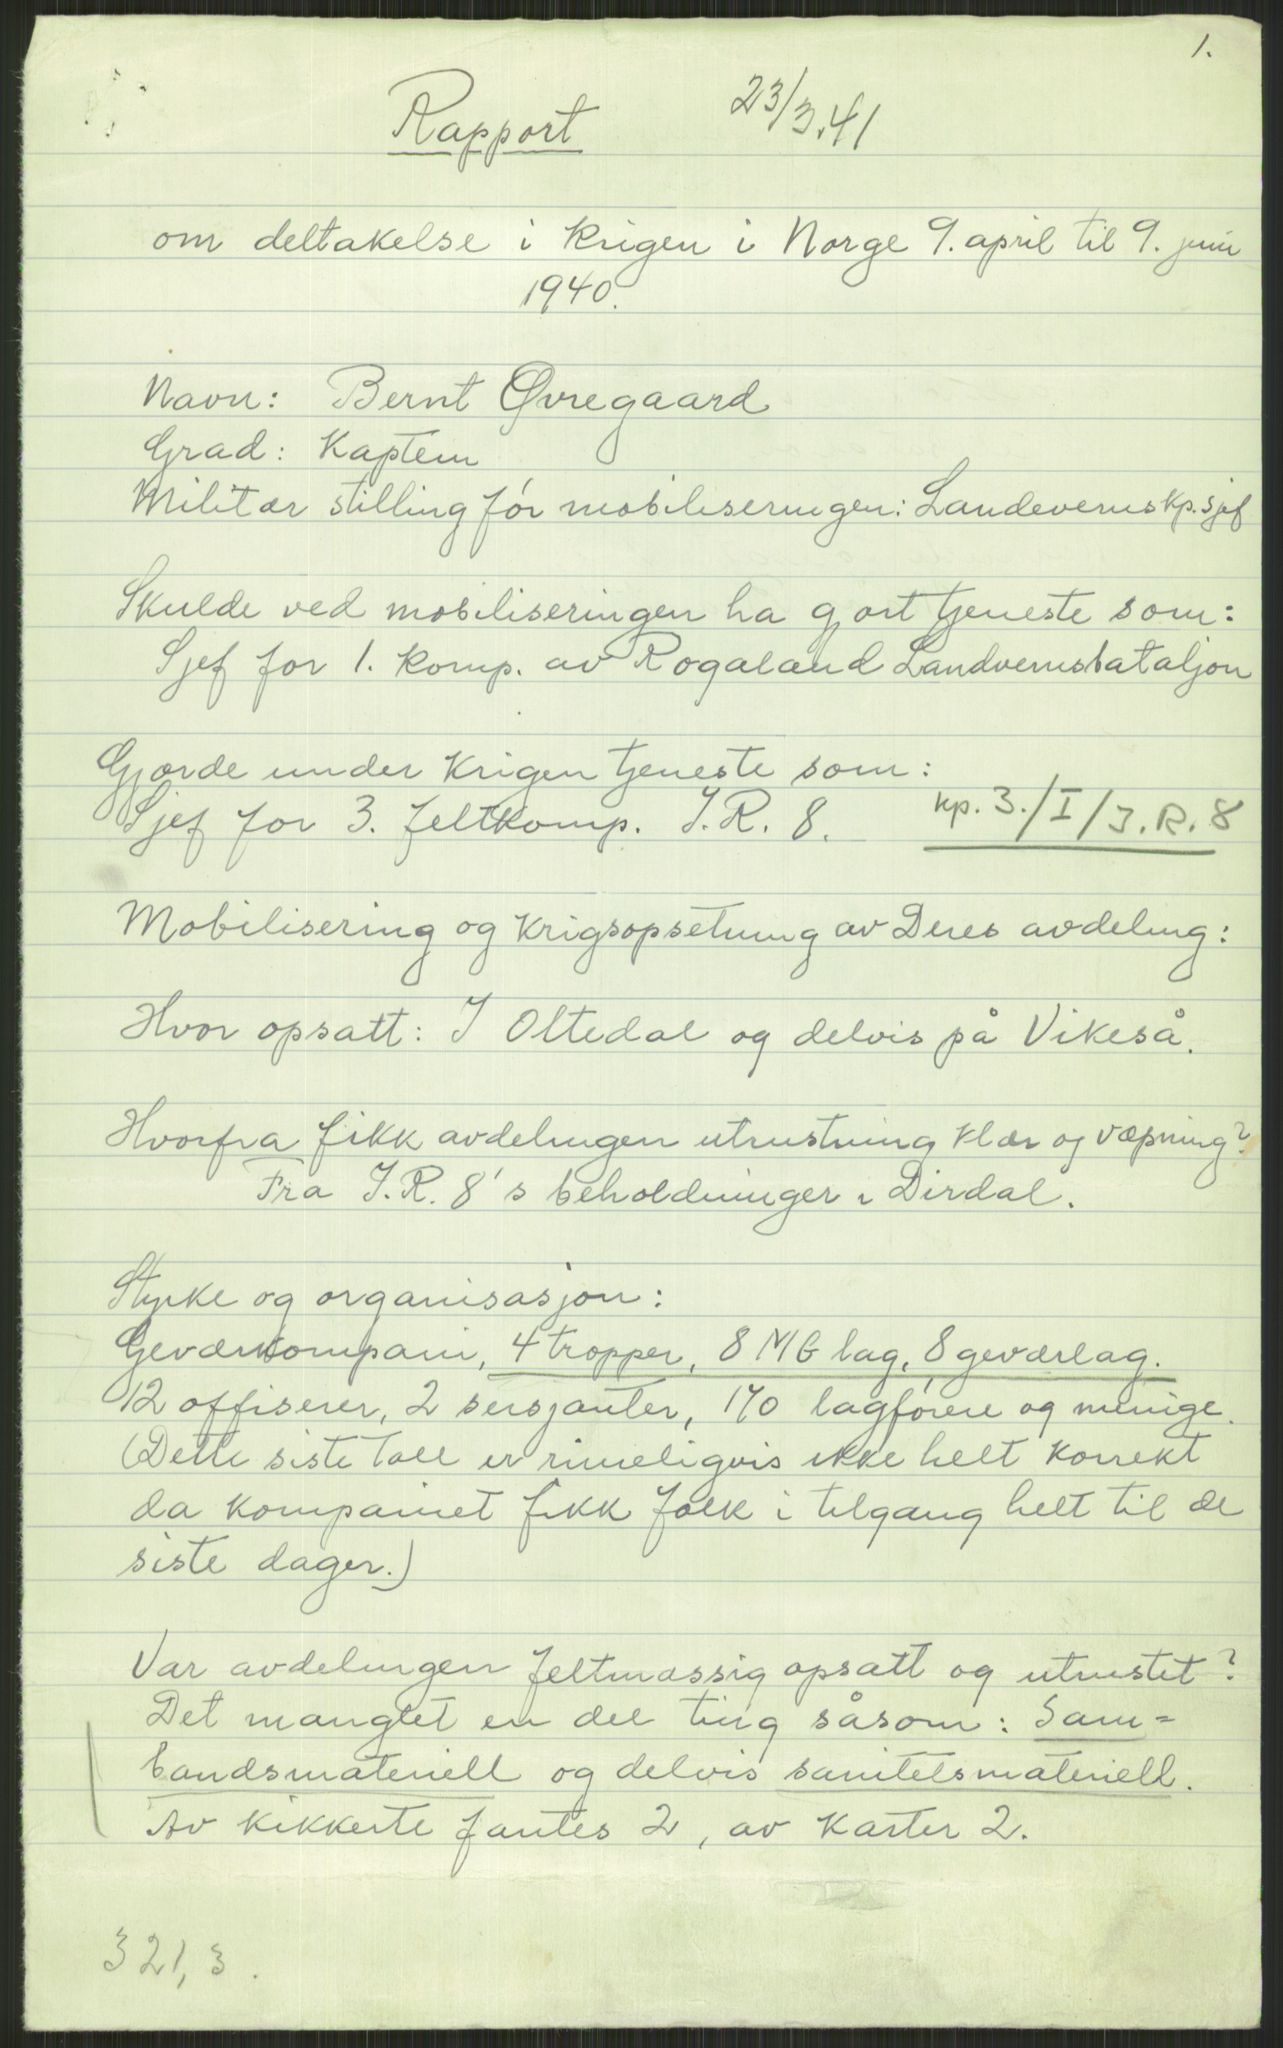 1.
Rapport
23/3.41
om deltakelse i krigen i Norge 9. april til 9. juni
1940.
Navn: Bernt Øvregaard
Grad: Kaptein
Militær stilling før mobiliseringen: Landevernskp.sjef
Skulde ved mobiliseringen ha gjort tjeneste som:
Sjef for 1. komp. av Rogaland Landvernsbataljon
Gjorde under krigen tjeneste som:
Sjef for 3. feltkomp. J.R. 8.
kp. 3./I/J.R. 8
Mobilisering og krigsopsetning av Deres avdeling:
Hvor opsatt: I Oltedal og delvis på Vikeså.
Hvorfra fikk avdelingen utrustning klær og væpning?
Fra J.R. 8's beholdninger i Dirdal.
Styrke og organisasjon:
Geværkompani, 4 tropper, 8 MG lag, 8 geværlag.
12 offiserer, 2 sersjanter, 170 lagførere og menige.
(Dette siste tall er rimeligvis ikke helt korrekt
da kompaniet fikk folk i tilgang helt til de
siste dager.)
Var avdelingen feltmassig opsatt og utrustet?
Det manglet en del ting såsom: Sam=
bandsmateriell og delvis sanitetsmateriell.
Av kikkerte fantes 2, av karter 2.
321,3.